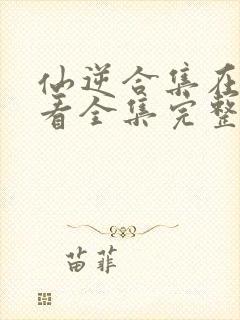 仙逆合集在
看全集完整
苗菲